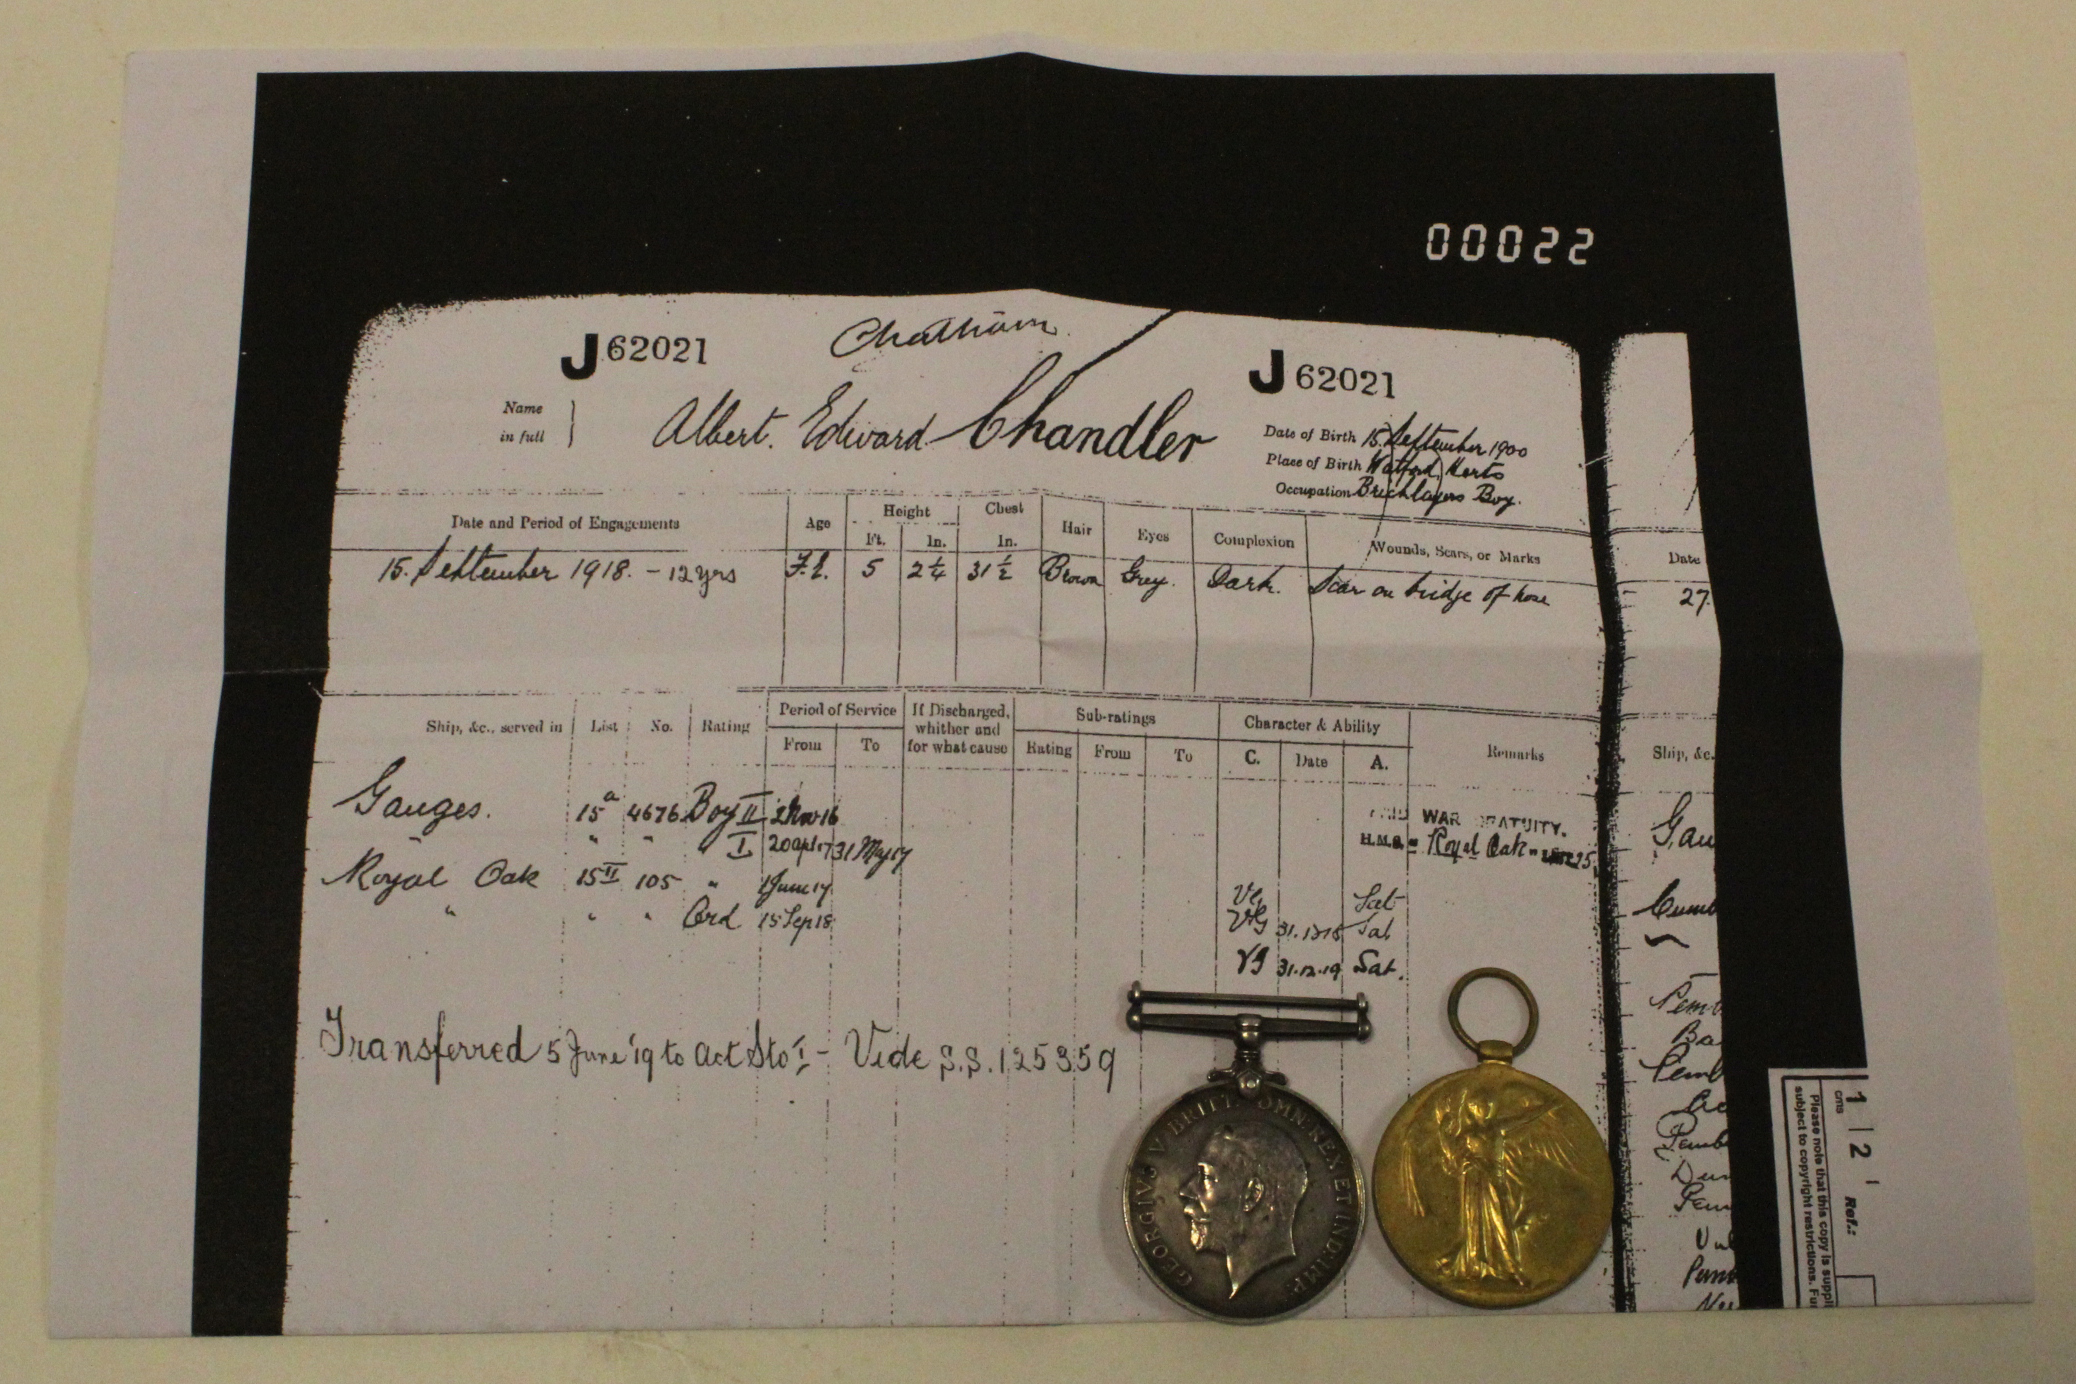 00022
J 62021
Chatham
J 62021
Name in full
Albert. Edward Chandler
Date of Birth 15 September 1900
Place of Birth Watford, Herts
Occupation Bricklayers Boy.
Date and Period of Engagements Age Height Ft. In. Chest In. Hair Eyes Complexion Wounds, Scars, or Marks
15. September 1918. - 12 yrs 5 2¼ 31½ Brown Grey. Dark. Scar on bridge of nose
Date
27.
Ship, &c., served in List No. Rating Period of Service From To If Discharged, whither and for what cause Sub-ratings Rating From To Character & Ability C. Date A. Remarks
Ship, &c.
Ganges. 15a 4676 Boy II 2 Nov 16
PAID WAR GRATUITY.
" " I 20 Apl 17 31 May 17
H.M.S. Royal Oak
Royal Oak 15II 105 " 1 June 17 VG Sat
" " " Ord 15 Sep 18 VG 31.12.18 Sat
VG 31.12.19 Sat.
Transferred 5 June '19 to Act Sto I - Vide S.S. 125359
Gan
Cumb
Pemb
Ba
Pemb
Pemb
Dun
Pem
GEORGIVS V BRITT: OMN: REX ET IND: IMP:
1 2
cms
Ref.:
Please note that this copy is suppl
subject to copyright restrictions. Fu